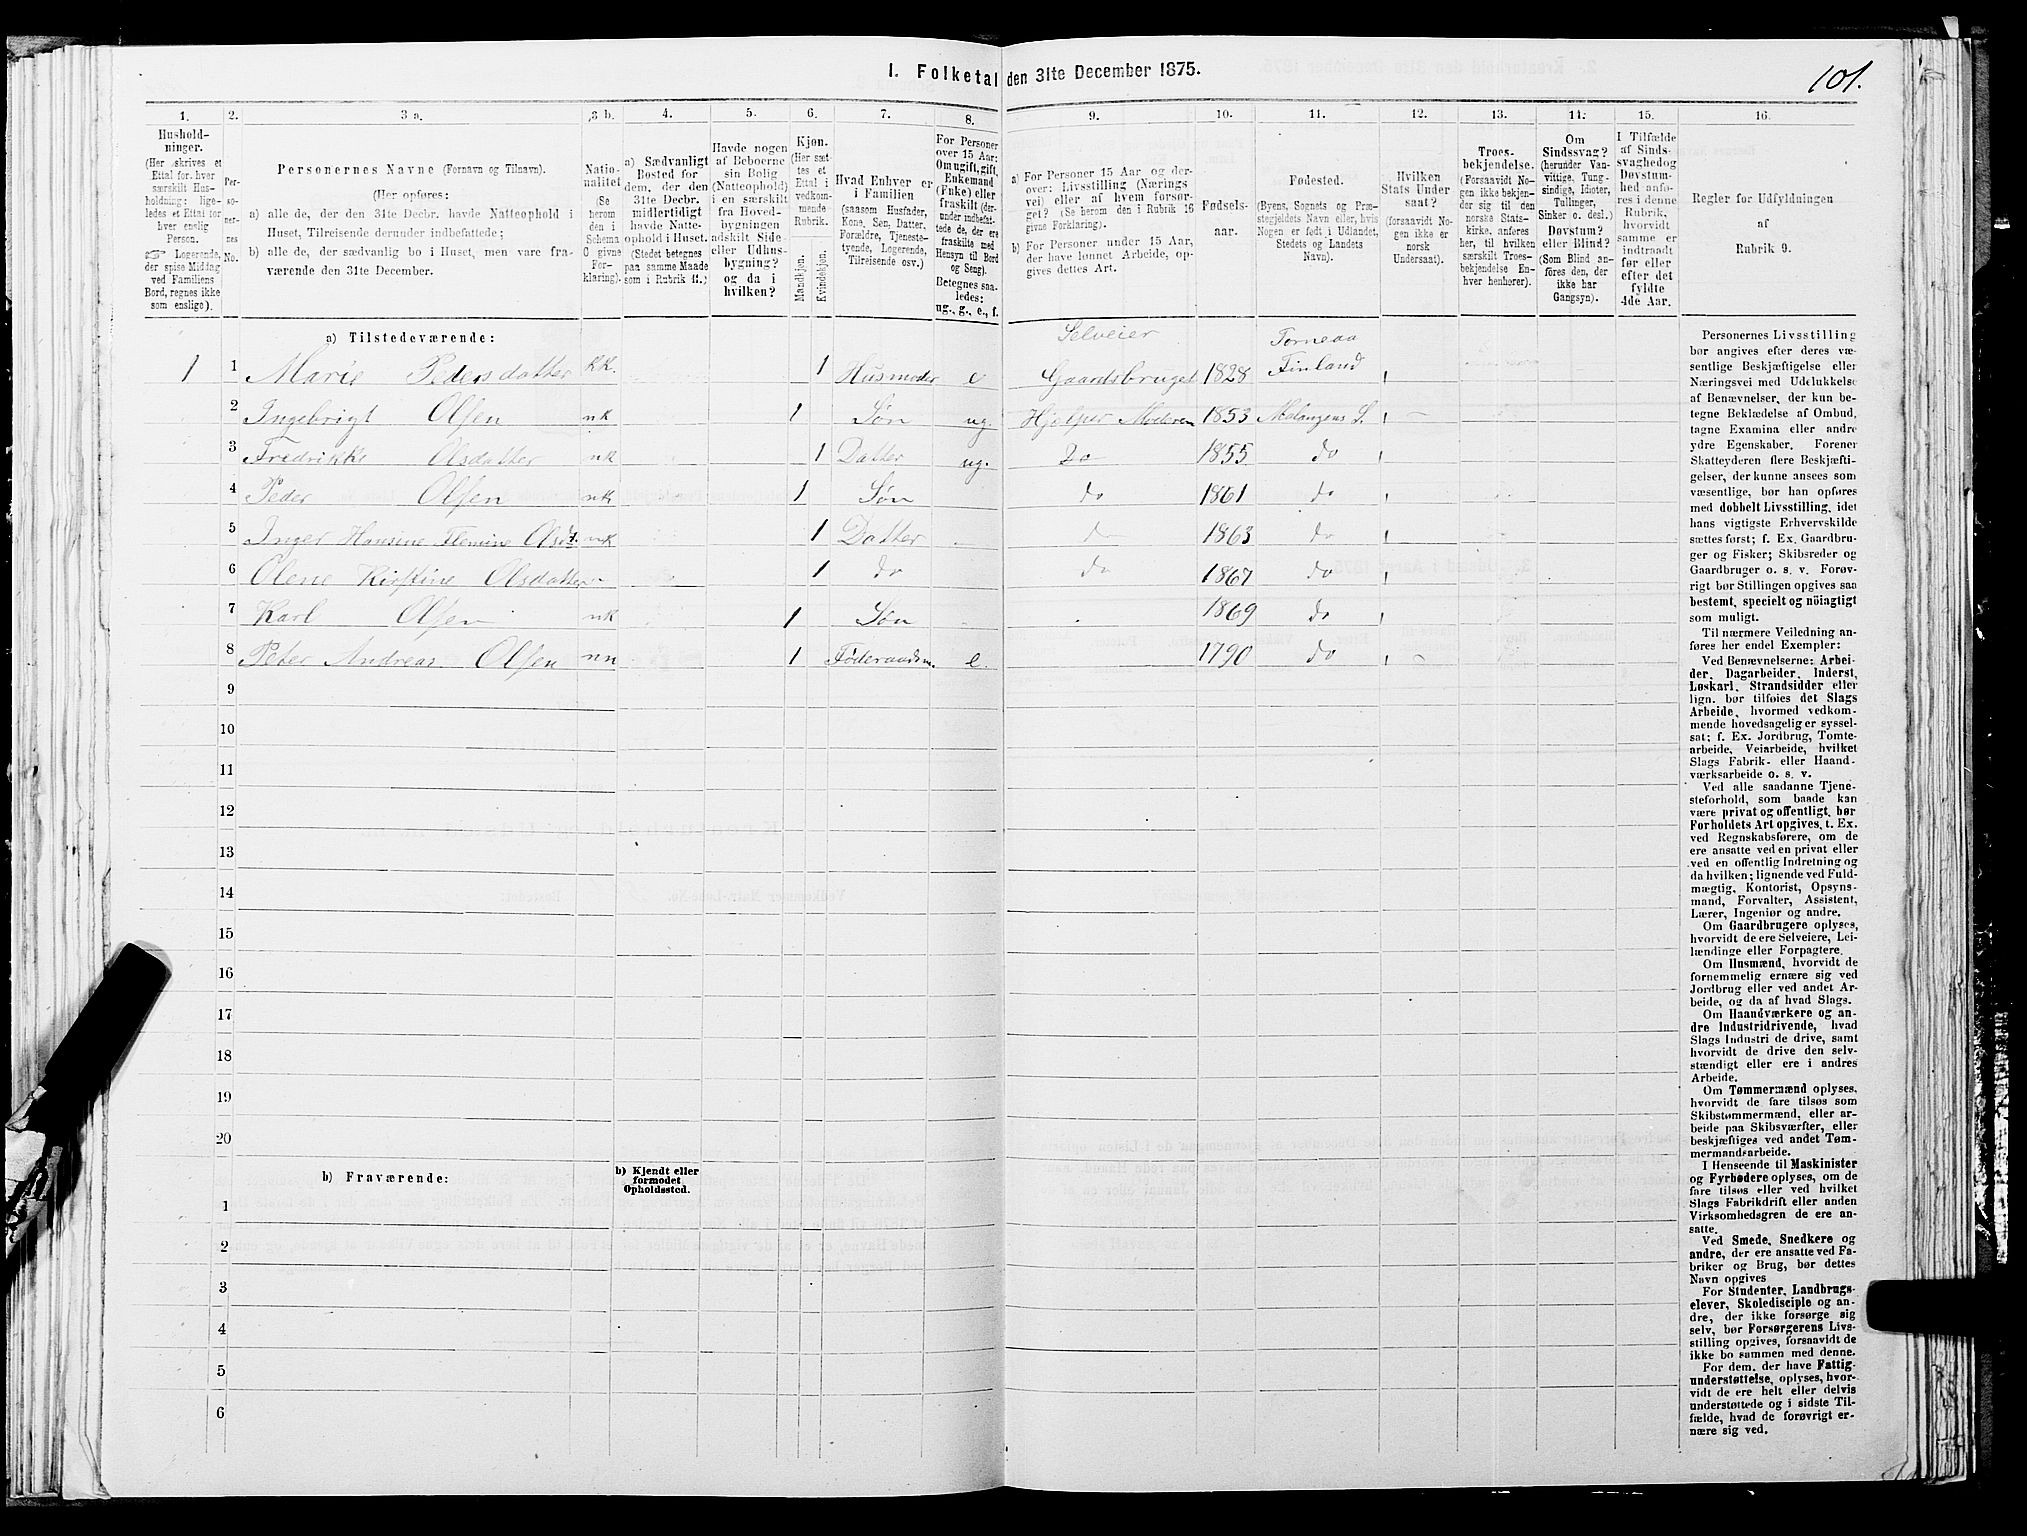 I. Folketal den 31te December 1875.
101.
1.
Hushold-
ninger.
(Her skrives et
Ettal for hver
særskilt Hus-
holdning; lige-
ledes et Ettal for
hver enslig
Person.
☞ Logerende,
der spise Middag
ved Familiens
Bord, regnes ikke
som enslige).
2.
Per-
so-
ner-
nes
No.
3 a.
Personernes Navne (Fornavn og Tilnavn).
(Her opføres:
a) alle de, der den 31te Decbr. havde Natteophold i
Huset, Tilreisende derunder indbefattede;
b) alle de, der sædvanlig bo i Huset, men vare fra-
værende den 31te December.
3 b.
Natio-
nalitet
(Se
herom
den i
Schema
O givne
For-
klaring).
4.
a) Sædvanligt
Bosted for
dem, der den
31te Decbr.
midlertidigt
havde Natte-
ophold i Huset.
(Stedet betegnes
paa samme Maade
som i Rubrik 11.)
5.
Havde nogen
af Beboerne
sin Bolig
(Natteophold)
i en særskilt
fra Hoved-
bygningen
adskilt Side-
eller Udhus-
bygning?
og da i
hvilken?
6.
Kjøn.
(Her sæt-
tes et
Ettal i
vedkom-
mende
Rubrik.
Mandkjøn.
Kvindekjøn.
7.
Hvad Enhver er
i Familien
(saasom Husfader,
Kone, Søn, Datter,
Forældre, Tjeneste-
tyende, Logerende,
Tilreisende osv.)
8.
For Personer
over 15 Aar:
Om ugift, gift,
Enkemand
(Enke) eller
fraskilt (der-
under indbefat-
tede de, der ere
fraskilte med
Hensyn til Bord
og Seng).
Betegnes saa-
ledes:
ug., g., e., f.
9.
a) For Personer 15 Aar og der-
over: Livsstilling (Nærings
vei) eller af hvem forsør-
get? (Se herom den i Rubrik 16
givne Forklaring).
b) For Personer under 15 Aar,
der have lønnet Arbeide, op-
gives dettes Art.
10.
Fødsels-
aar.
11.
Fødested.
(Byens, Sognets og Præ-
stegjeldets Navn eller, hvis
Nogen er født i Udlandet,
Stedets og Landets
Navn).
12.
Hvilken
Stats Under
saat?
(forsaavidt No-
gen ikke er
norsk
Undersaat).
13.
Troes-
bekjendelse.
(Forsaavidt No-
gen ikke bekjen-
der sig til den
norske Stats-
kirke, anføres
her, til hvilken
særskilt Troes-
bekjendelse En-
hver henhører).
14.
Om
Sindssvag?
(herunder Van-
vittige, Tung-
sindige, Idioter,
Tullinger,
Sinker o. desl.)
Døvstum?
eller Blind?
(Som Blind an-
føres den, der
ikke har
Gangsyn).
15.
I Tilfælde
af Sinds-
svaghed og
Døvstum-
hed anfø-
res i denne
Rubrik,
hvorvidt
samme er
indtraadt
før eller
efter det
fyldte
4de Aar.
16.
Regler for Udfyldningen
af
Rubrik 9.
a) Tilstedeværende:
Selveier Torneaa
1 1 Marie Pedersdatter kk. 1 Husmoder e Gaardsbruget 1828 Finland
2 Ingebrigt Olsen nk 1 Søn ug. Hjelper Moderen 1853 Malangens S.
3 Fredrikke Olsdatter nk 1 Datter ug. Do 1855 do
4 Peder Olsen nk 1 Søn do 1861 do
5 Inger Hansine Flemine Olsdt. nk 1 Datter do 1863 do
6 Olene Kirstine Olsdatter 1 do do 1867 do
7 Karl Olsen nk 1 Søn 1869 do
8 Peter Andreas Olsen nn 1 Føderaadsm. e. 1790 do
9
10
11
12
13
14
15
16
17
18
19
20
b) Fraværende:
b) Kjendt eller
formodet
Opholdssted.
1
2
3
4
5
6
Personernes Livsstilling
bør angives efter deres væ-
sentlige Beskjæftigelse eller
Næringsvei med Udelukkelse
af Benævnelser, der kun be-
tegne Beklædelse af Ombud,
tagne Examina eller andre
ydre Egenskaber. Forener
Skatteyderen flere Beskjæfti-
gelser, der kunne ansees som
væsentlige, bør han opføres
med dobbelt Livsstilling, idet
hans vigtigste Erhvervskilde
sættes først; f. Ex. Gaardbru-
ger og Fisker; Skibsreder og
Gaardbruger o. s. v. Forøv-
rigt bør Stillingen opgives saa
bestemt, specielt og nöiagtigt
som muligt.
Til nærmere Veiledning an-
føres her endel Exempler:
Ved Benævnelserne: Arbei-
der, Dagarbeider, Inderst,
Løskarl, Strandsidder eller
lign. bør tilføies det Slags
Arbeide, hvormed vedkom-
mende hovedsagelig er syssel-
sat; f. Ex. Jordbrug, Tomte-
arbeide, Veiarbeide, hvilket
Slags Fabrik- eller Haand-
værksarbeide o. s. v.
Ved alle saadanne Tjene-
steforhold, som baade kan
være privat og offentligt, bør
Forholdets Art opgives, t. Ex.
ved Regnskabsførere, om de
ere ansatte ved en privat eller
ved en offentlig Indretning og
da hvilken; lignende ved Fuld-
mægtig, Kontorist, Opsyns-
mand, Forvalter, Assistent,
Lærer, Ingeniør og andre.
Om Gaardbrugere oplyses,
hvorvidt de ere Selveiere, Lei-
lændinge eller Forpagtere.
Om Husmænd, hvorvidt de
fornemmelig ernære sig ved
Jordbrug eller ved andet Ar-
beide, og da af hvad Slags.
Om Haandværkere og an-
dre Industridrivende, hvad
Slags Industri de drive, samt
hvorvidt de drive den selv-
stændigt eller ere i andres
Arbeide.
Om Tømmermænd oplyses,
hvorvidt de fare tilsøs som
Skibstømmermænd, eller ar-
beide paa Skibsværfter, eller
beskjæftiges ved andet Tøm-
mermandsarbeide.
I Henseende til Maskinister
og Fyrbødere oplyses, om de
fare tilsøs eller ved hvilket
Slags Fabrikdrift eller anden
Virksomhedsgren de ere an-
satte.
Ved Smede, Snedkere og
andre, der ere ansatte ved Fa-
briker og Brug, bør dettes
Navn opgives
For Studenter, Landbrugs-
elever, Skoledisciple og an-
dre, der ikke forsørge sig
selv, bør Forsørgerens Livs-
stilling opgives, forsaavidt de
ikke bo sammen med denne.
For dem, der have Fattig-
understøttelse, oplyses, hvor-
vidt de ere helt eller delvis
understøttede og i sidste Til-
fælde, hvad de forøvrigt er-
nære sig ved.